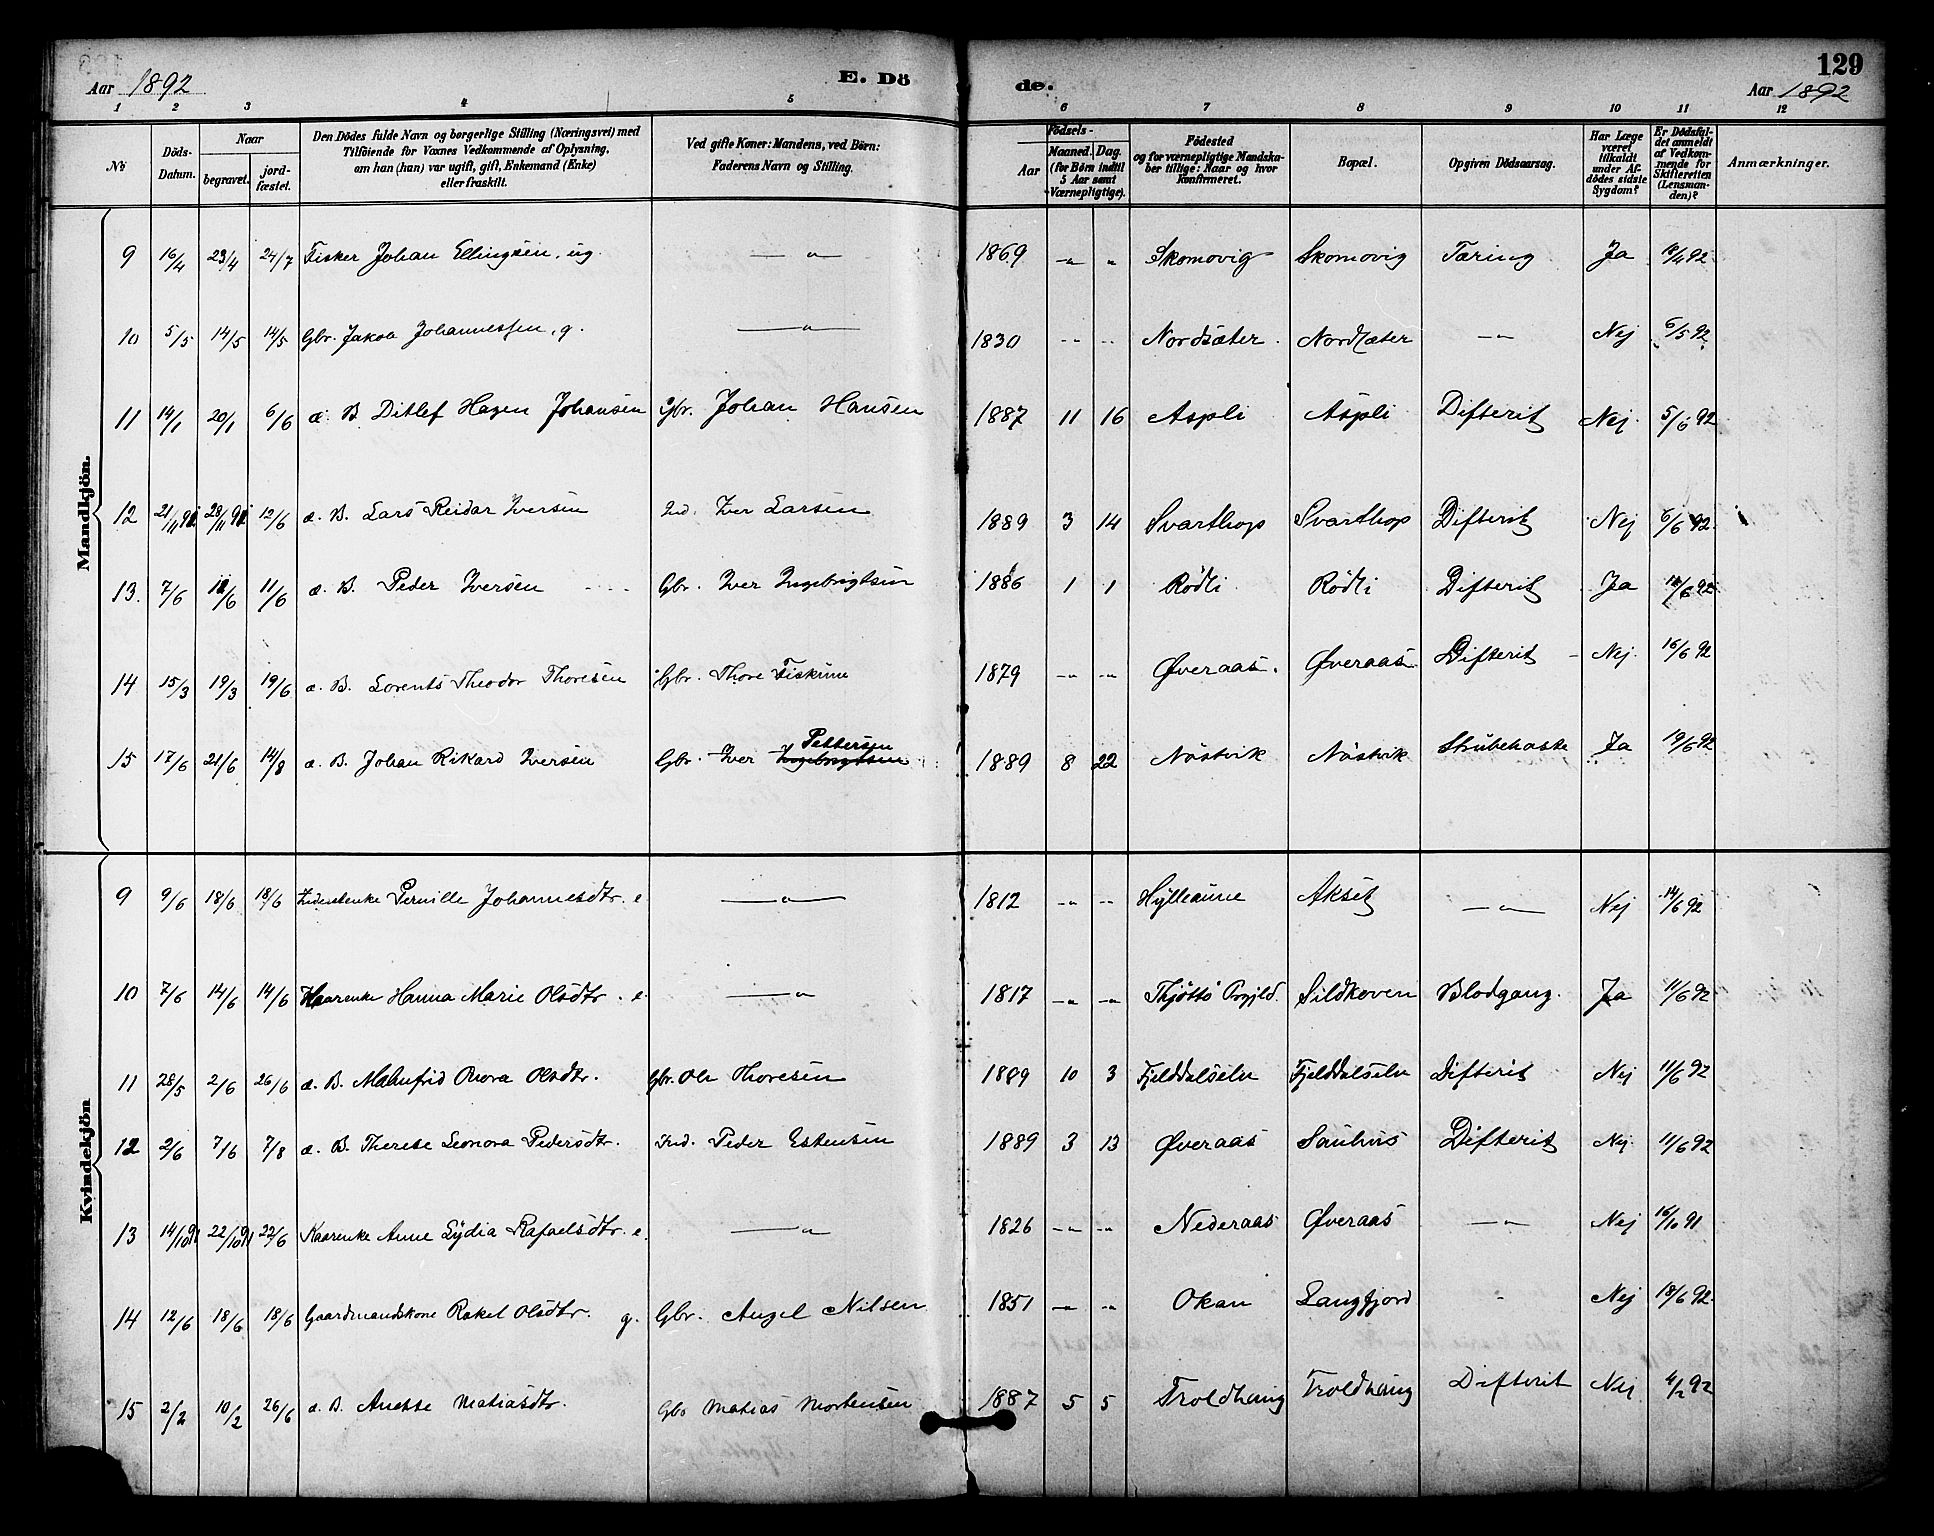 Aar 1892
E. Dö
de.
129
Aar 1892
1 2 3 4 5 6 7 8 9 10 11 12
No
Döds-Datum.
Naar
begravet.
jordfæstet.
Den Dödes fulde Navn og borgerlige Stilling (Næringsvei) med
Tilföiende for Voxnes Vedkommende af Oplysning,
om han (hun) var ugift, gift, Enkemand (Enke)
eller fraskilt.
Ved gifte Koner: Mandens, ved Börn:
Faderens Navn og Stilling.
Födsels-
Aar
Maaned. Dag.
(for Börn indtil
5 Aar samt
Værnepligtige).
Födested
og for værnepligtige Mandskaber
tillige: Naar og hvor
konfirmeret.
Bopæl.
Opgiven Dödsaarsag.
Har Læge
været
tilkaldt
under Afdödes
sidste
Sygdom?
Er Dödsfaldet
anmeldt
af Vedkommende
for
Skifteretten
(Lensmanden)?
Anmærkninger.
Mandkjön.
9 16/4 23/4 24/7 Fisker Johan Ellingsen, ug. —„— 1869 —„— „ Skomovig Skomovig Tæring Ja 18/4 92
10 5/5 14/5 14/5 Gbr. Jakob Johannessen, g. —„— 1830 -„- -„- Nordsæter. Nordsæter —„— Nej 6/5 92
11 14/1 20/1 6/6 æ. B. Ditlef Hagen Johansen Gbr. Johan Hansen 1887 11 16 Aspli Aspli Difterit Nej. 5/6 92
12 21/11 91 28/11 91 12/6 æ. B. Lars Reidar Iversen Ind. Iver Larsen 1889 3 14 Svarthop Svarthop Difterit Nej 6/6 92
13. 7/6 11/6 11/6 æ. B. Peder Iversen Gbr. Iver Ingebrigtsen 1886 1 1 Rödli Rödli Difterit Ja 12/6 92
14 15/3 19/3 19/6 æ. B. Lorents Theodor Thoresen Gbr. Thore Fiskum 1879 —„— —„— Øveraas. Øveraas Difterit Nej. 16/6 92
15 17/6 21/6 14/8 æ. B. Johan Rikard Iversen Gbr. Iver Ingebrigtsen Pettersen 1889 8 22 Nästvik Nästvik Strubehoste Ja 19/6 92
Kvindekjön
9 9/6 18/6 18/6 Pernille Johannesdtr. e —„— 1812 -„- -„- Hylleaune Akset —„— Nej 14/6 92
10 7/6 14/6 14/6 Kaarenke Hanna Marie Olsdtr. e. —„— 1817 —„— —„— Thjöttö Prgjld. Sildhoven Blodgang. Ja 11/6 92
11 28/5 2/6 26/6 æ. B. Malmfrid Olsdtr. Gbr. Ole Thoresen 1889 10 3 Fjelddalselv Fjelddalselv Difterit Nej 11/6 92
12 2/6 7/6 7/8 æ. B. Therese Leonora Pedersdtr. Ind. Peder Estensen 1889 3 13 Øveraas Sauhus Difterit Nej. 11/6 92
13 14/10 91 22/10 91 22/6 Kaarenke Anne Lydia Rafaelsdtr. e. —„— 1826 —„— -„- Nederaas Øveraas —„— Nej 16/10 91
14 12/6 18/6 18/6 Gaardmandskone Rakel Olsdtr. g. Gbr. Angel Nilsen 1851 —„— -„- Okan Langfjord - Nej 18/6 92.
15 2/2 10/2 26/6 æ. B. Anette Matiasdtr. Gbr Matias Mortensen 1887 5 5 Troldhaug Troldhaug Difterit Nej 4/2 92